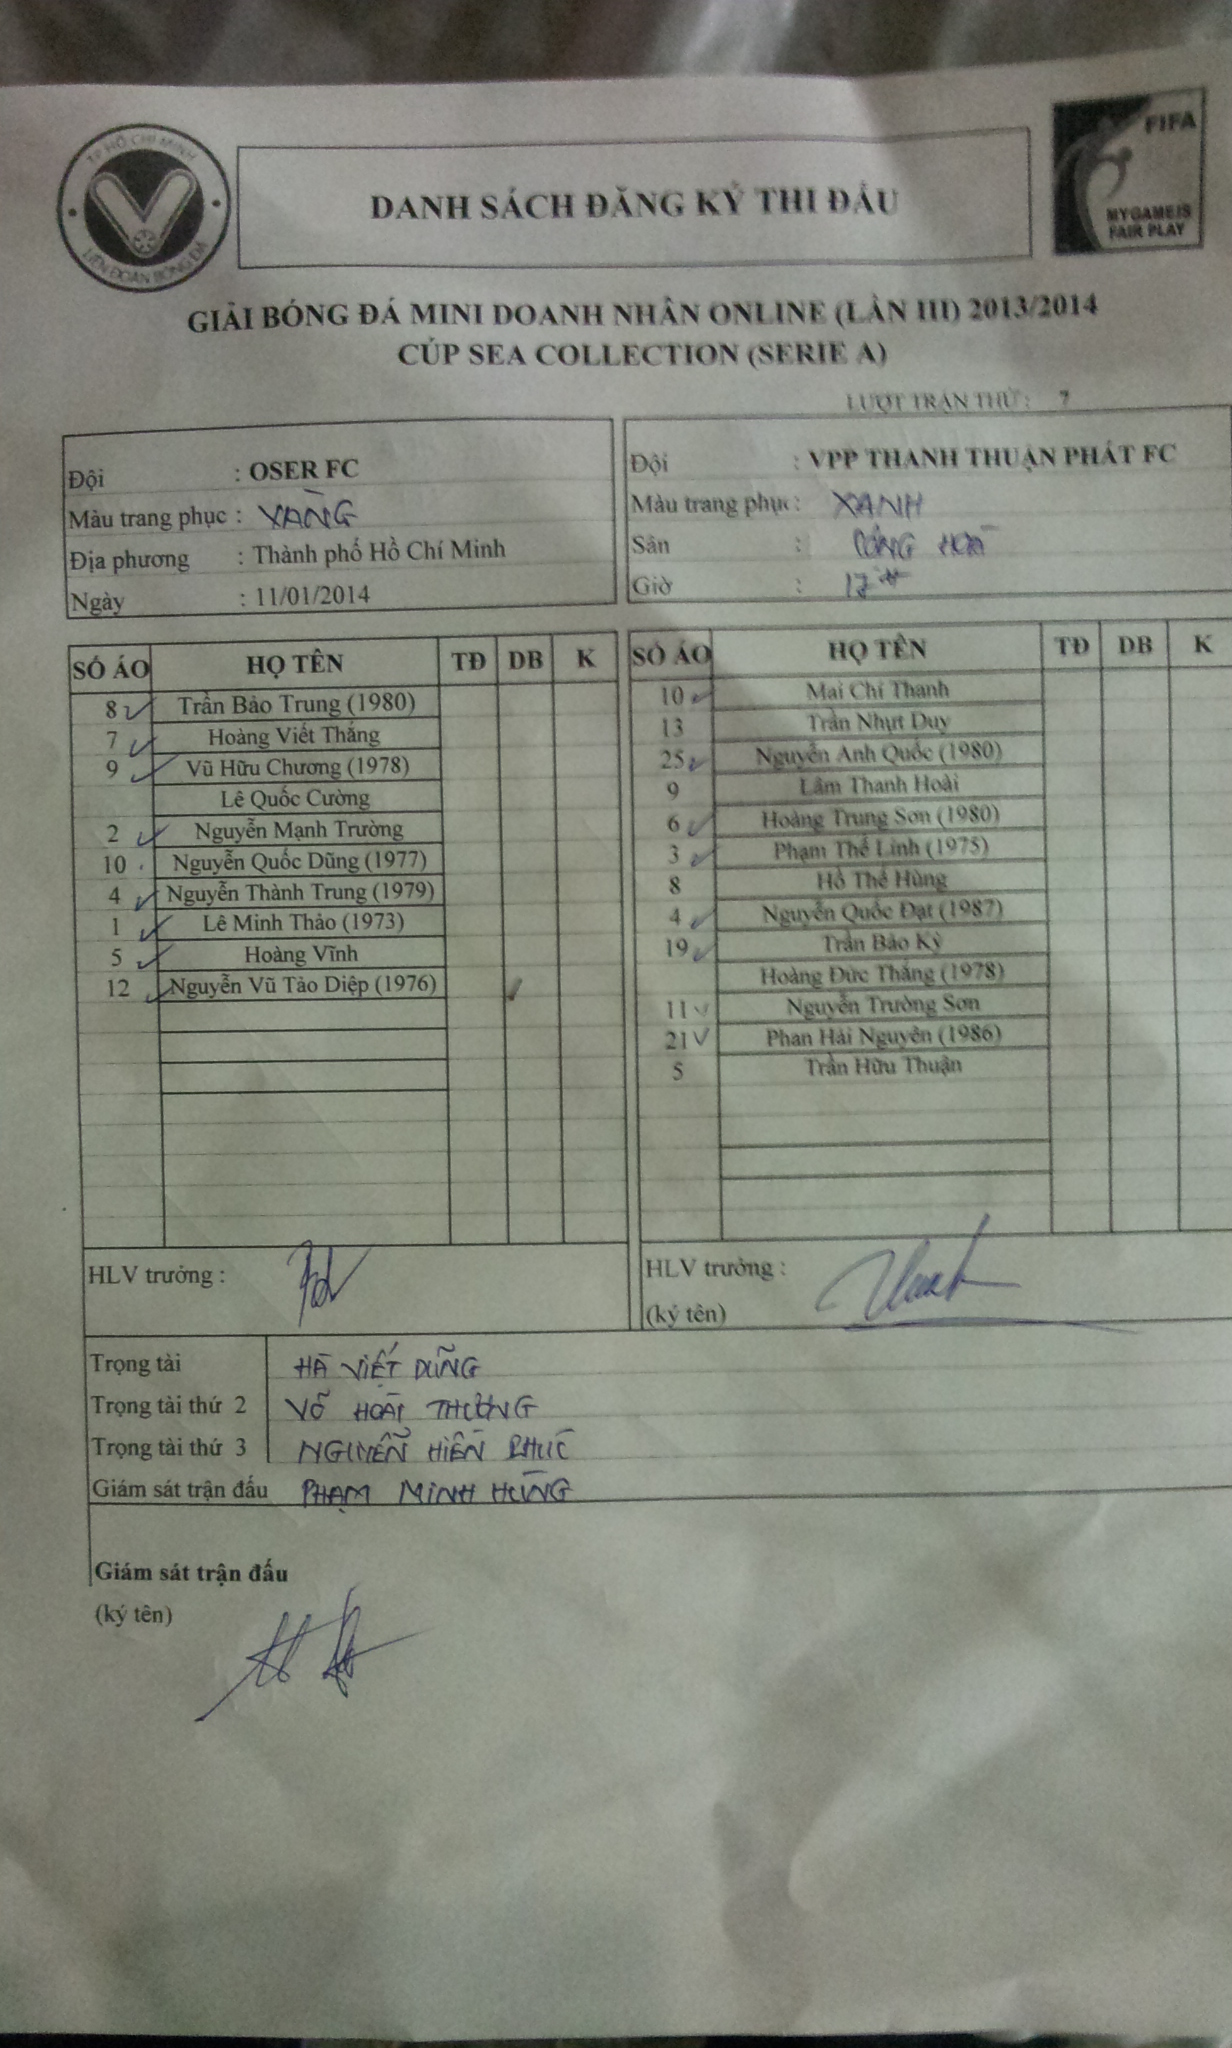 TP HỒ CHÍ MINH
LIÊN ĐOÀN BÓNG ĐÁ
DANH SÁCH ĐĂNG KÝ THI ĐẤU
FIFA
MY GAME IS
FAIR PLAY
GIẢI BÓNG ĐÁ MINI DOANH NHÂN ONLINE (LẦN III) 2013/2014
CÚP SEA COLLECTION (SERIE A)
LƯỢT TRẬN THỨ : 7
Đội : OSER FC
Màu trang phục : VÀNG
Địa phương : Thành phố Hồ Chí Minh
Ngày : 11/01/2014
Đội : VPP THANH THUẬN PHÁT FC
Màu trang phục : XANH
Sân : CỘNG HOÀ
Giờ : 17H
SỐ ÁO HỌ TÊN TĐ DB K
8 Trần Bảo Trung (1980)
7 Hoàng Viết Thắng
9 Vũ Hữu Chương (1978)
Lê Quốc Cường
2 Nguyễn Mạnh Trường
10 Nguyễn Quốc Dũng (1977)
4 Nguyễn Thành Trung (1979)
1 Lê Minh Thảo (1973)
5 Hoàng Vĩnh
12 Nguyễn Vũ Tảo Diệp (1976)
SỐ ÁO HỌ TÊN TĐ DB K
10 Mai Chí Thanh
13 Trần Nhựt Duy
25 Nguyễn Anh Quốc (1980)
9 Lâm Thanh Hoài
6 Hoàng Trung Sơn (1980)
3 Phạm Thế Linh (1975)
8 Hồ Thế Hùng
4 Nguyễn Quốc Đạt (1987)
19 Trần Bảo Kỳ
Hoàng Đức Thắng (1978)
11 Nguyễn Trường Sơn
21 Phan Hải Nguyên (1986)
5 Trần Hữu Thuận
HLV trưởng :
HLV trưởng :
(ký tên)
Trọng tài HÀ VIẾT DŨNG
Trọng tài thứ 2 VÕ HOÀI THƯƠNG
Trọng tài thứ 3 NGUYỄN HIỀN PHÚC
Giám sát trận đấu PHẠM MINH HÙNG
Giám sát trận đấu
(ký tên)